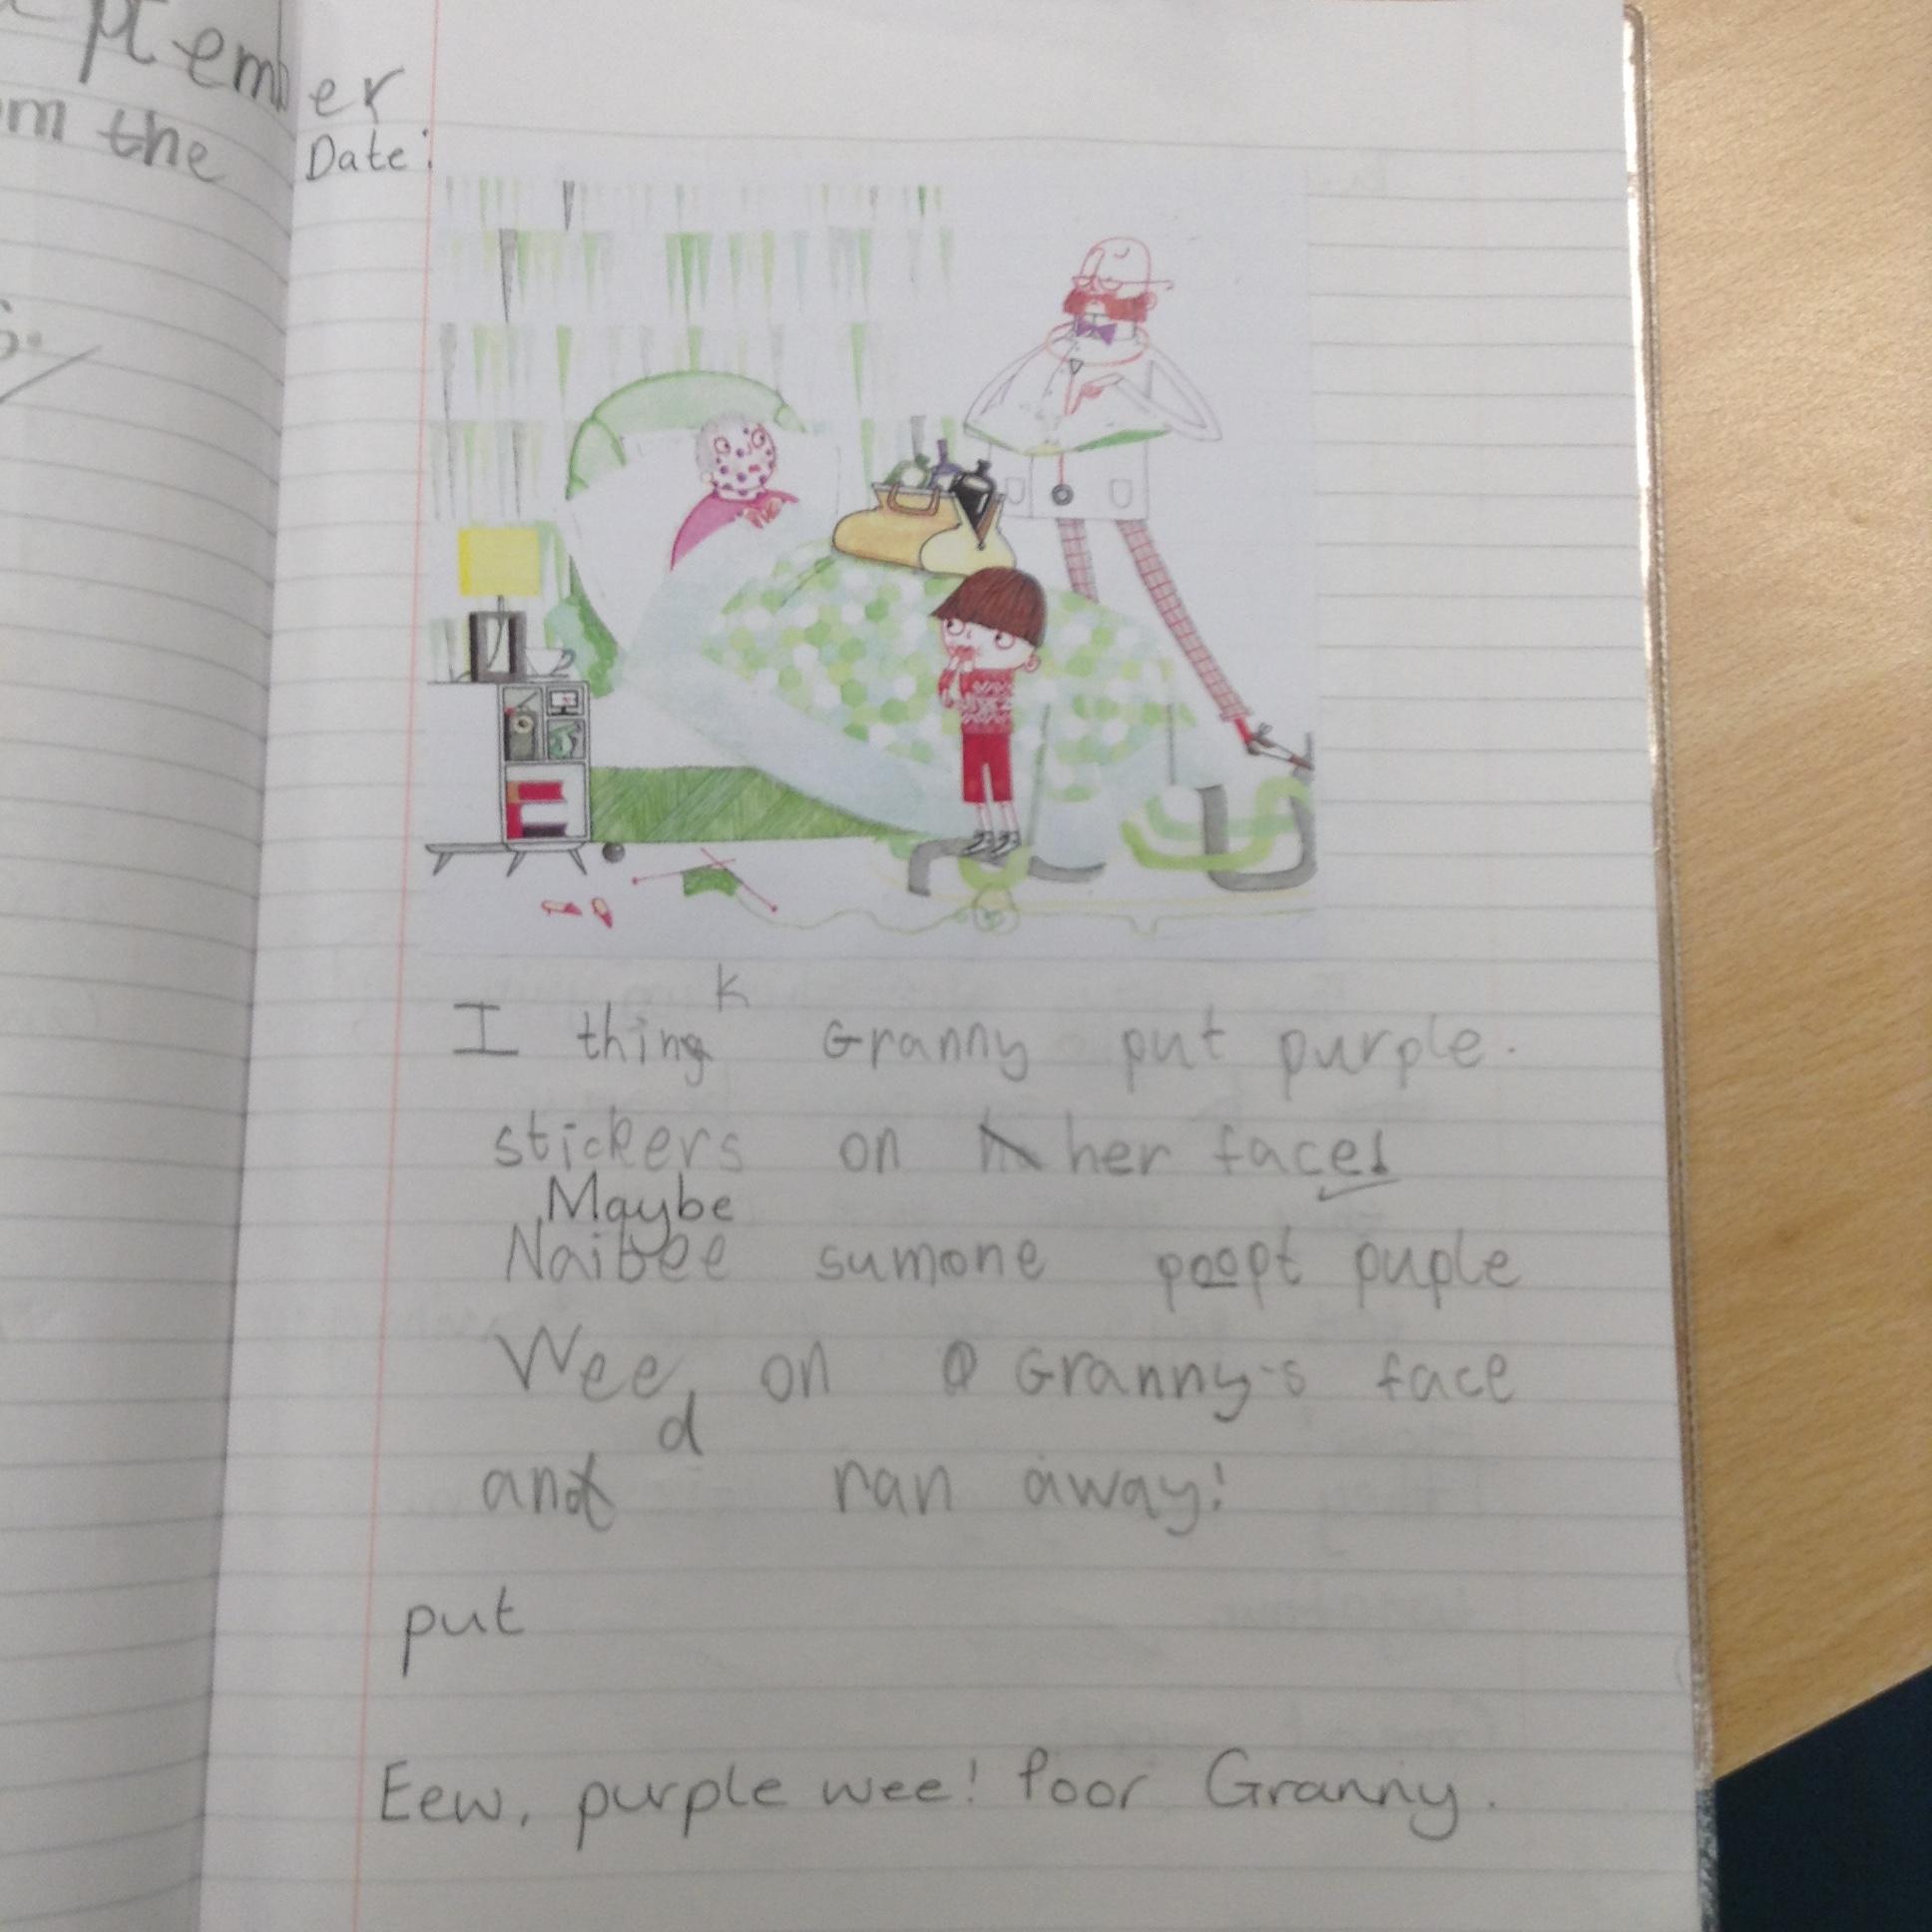 ptember
om the
Date:
k
I thing Granny put purple.
stickers on her face!
Maybe
Naibee sumone poopt puple
Wee, on Granny's face
d
and ran away!
put
Eew, purple wee! Poor Granny.